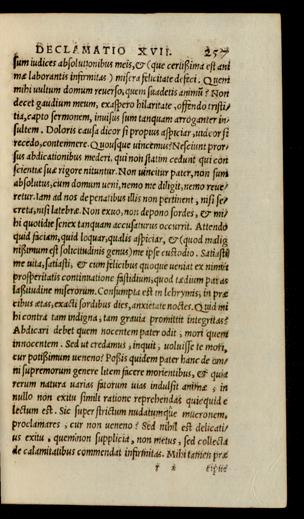 DECLAMATIO XVII. 257
sum iudices absolutionibus meis, & (que certißima est ani
mæ laborantis infirmitas) misera felicitate defeci. Quem
mihi uultum domum reuerso, quem suadetis animū? Non
decet gaudium meum, exaspero hilaritate, offendo tristi/
tia, capto sermonem, inuisus sum tanquam arroganter in/
sultem. Doloris causa dicor si propius aspiciar, uideor si
recedo, contemnere. Quousque uincemus? Nesciunt pror/
sus abdicationibus mederi, qui non statim cedunt qui con
scientiæ suæ rigore nituntur. Non uincitur pater, non sum
absolutus, cum domum ueni, nemo me diligit, nemo reue/
retur. Iam ad nos depenatibus illis non pertinent, nisi se/
creta, nisi latebræ. Non exuo, non depono sordes, & mi/
hi quotidie senex tanquam accusaturus occurrit. Attendo
quid faciam, quid loquar, qualis aspiciar, & (quod malig
nißimum est solicitudinis genus) me ipse custodio. Satiasti
me uita, satiasti, & cum felicibus quoque ueniat ex nimia
prosperitatis continuatione fastidium, quod tædium par as
laßitudine miserorum. Consumpta est in lchrymis, in præ
cibus ætas, exacti sordibus dies, anxietate noctes. Quid mi
hi contra tam indigna, tam grauia promittit integritas?
Abdicari debet quem nocentem pater odit, mori quem
innocentem. Sed ut credamus, inquit, uoluisse te mori,
cur potißimum ueneno? Poßis quidem pater hanc de om/
ni supremorum genere litem facere morientibus, & quia
rerum natura uarias fatorum uias indulsit animæ, in
nullo non exitu simili ratione reprehendas quicquid e
lectum est. Sic super strictum nudatumque mucronem,
proclamares, cur non ueneno? Sed nihil est delicati/
us exitu, quem non supplicia, non metus, sed collecta
de calamitatibus commendat infirmitas. Mihi tamen præ